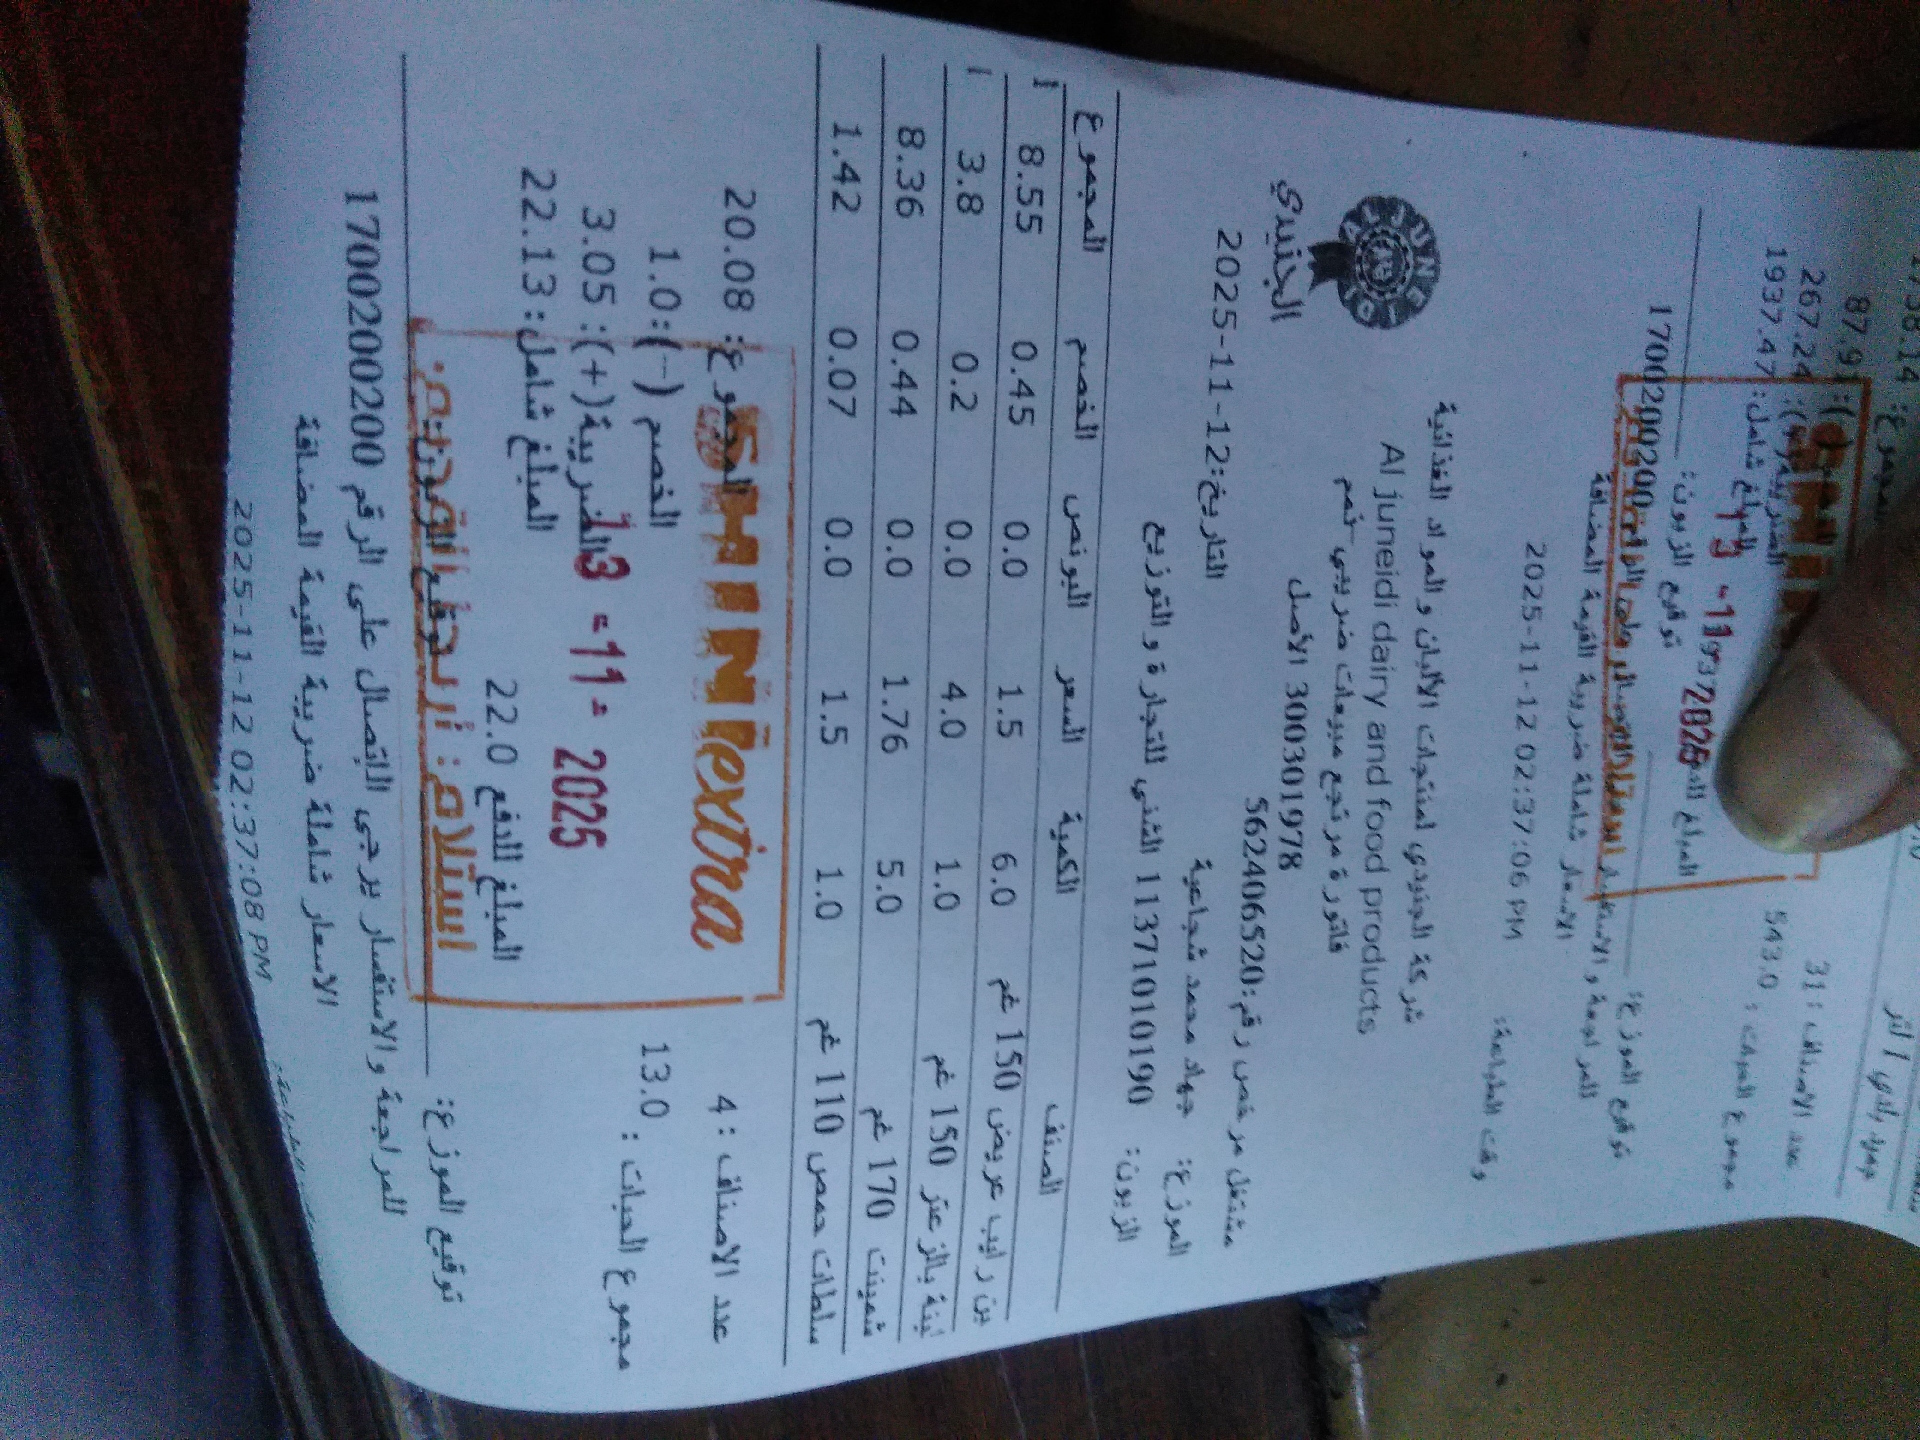 267.24
1937.47 :المبلغ شامل
عدد الاصناف : 31
543.0
توقيع الزبون:
توقيع الموزع:
1700200200
الاسعار شاملة ضريبة القيمة المضافة
وقت الطباعة: 2025-11-12 02:37:06 PM
الجنيدي
شركة الجنيدي لمنتجات الألبان و المواد الغذائية
Al juneidi dairy and food products
فاتورة مرتجع مبيعات ضريبي-تمم
300301978 الأصل
مشتغل مرخص رقم:562406520
التاريخ:12-11-2025
الموزع: جهاد محمد شجاعية
الزبون: 1137101010190 الشني للتجارة و التوزيع
الصنف الكمية السعر البونص الخصم المجموع
ين رايب عريض 150 غم 6.0 1.5 0.0 0.45 8.55
لبنة بالزعتر 150 غم 1.0 4.0 0.0 0.2 3.8
شمينت 170 غم 5.0 1.76 0.0 0.44 8.36
سلطات حمص 110 غم 1.0 1.5 0.0 0.07 1.42
عدد الاصناف : 4
المجموع: 20.08
SHINIextra
مجموع الحبات : 13.0
الخصم (-):1.0
الضريبة(+): 3.05
13 -11- 2025
المبلغ شامل: 22.13
المبلغ للدفع 22.0
استلام:
توقيع الموزع:
للمراجعة و الاستفسار يرجى الاتصال على الرقم 1700200200
الاسعار شاملة ضريبة القيمة المضافة
2025-11-12 02:37:08 PM